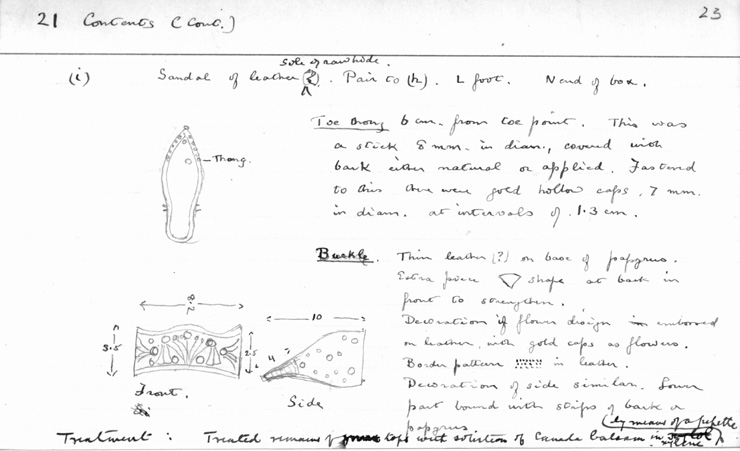 21 Contents (Cont.)
23
sole of rawhide.
(i) Sandal of leather (?). Pair to (h). L foot. N end of box.
Toe thong 6 cm. from toe point. This was
a stick 8 mm. in diam., covered with
bark either natural or applied. Fastened
to this there were gold hollow caps, 7 mm.
in diam. at intervals of 1.3 cm.
Thong.
Buckle. Thin leather (?) on base of papyrus.
Extra piece shape at back in
front to strengthen.
Decoration of flower design in embossed
on leather, with gold caps as flowers.
Border pattern in leather.
Decoration of side similar. Lower
part bound with strips of bark or
papyrus
8.2
3.5
2.5
10
4
Front.
Side
(by means of a pipette)
Treatment: Treated remains of tops with solution of Canada balsam in xylol
xylene